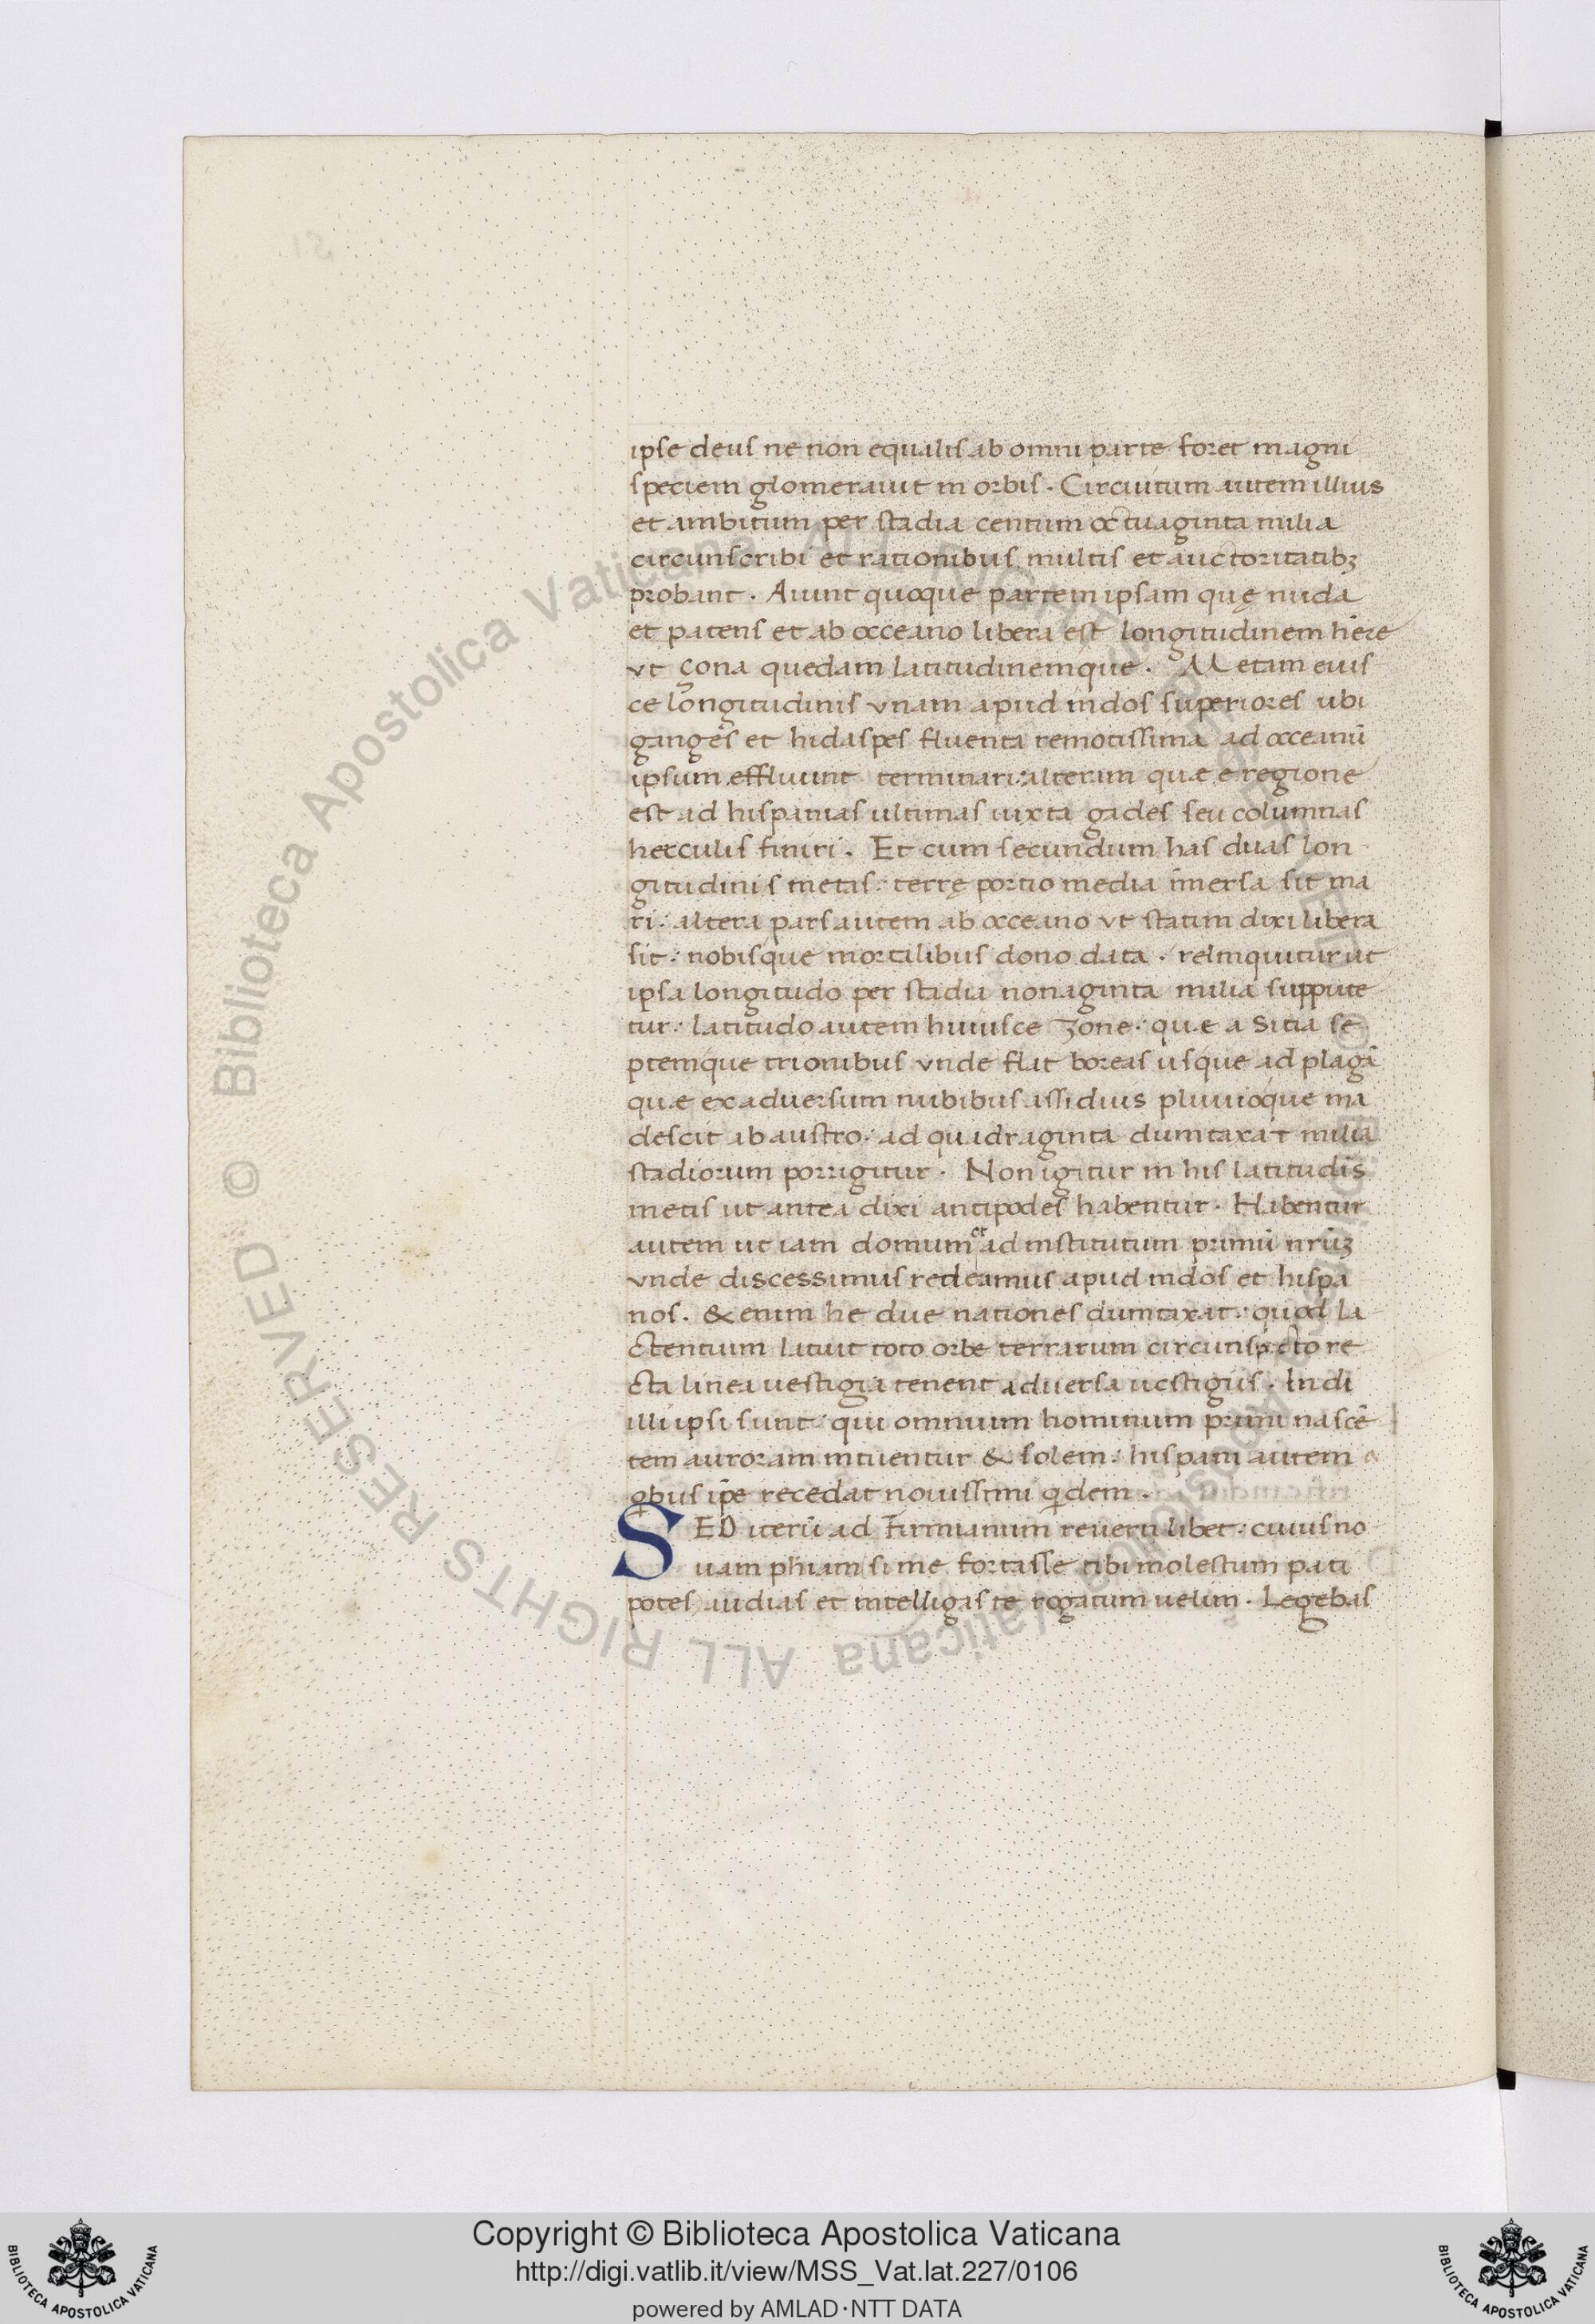 ipse deus ne non equalis ab omni parte foret magni
speciem glomerauit in orbis. Circuitum autem illius
et ambitum per stadia centum octuaginta milia
circunscribi et rationibus multis et auctoritatibꝫ
probant. Aiunt quoque partem ipsam quę nuda
et patens et ab occeano libera est longitudinem hēre
vt çona quedam latitudinemque. Metam eius
ce longitudinis vnam apud indos superiores ubi
ganges et hidaspes fluenta remotissima ad occeanū
ipsum effluunt terminari: alteram quæ e regione
est ad hispanias ultimas iuxta gades seu columnas
herculis finiri. Et cum secundum has duas lon
gitudinis metas: terrę portio media īmersa sit ma
ri: altera pars autem ab occeano vt statim dixi libera
sit: nobisque mortalibus dono data. relinquitur ut
ipsa longitudo per stadia nonaginta milia suppute
tur: latitudo autem huiusce zone: quæ a sitia se
ptemque trionibus vnde flat boreas usque ad plagā
quæ ex aduersum nubibus assiduis pluuioque ma
descit ab austro: ad quadraginta dumtaxat milia
stadiorum porrigitur. Non igitur in his latitudīs
metis ut antea dixi antipodes habentur. Habentur
autem ut iam domum et ad institutum primū nrūꝫ
vnde discessimus redeamus apud indos et hispa
nos. & enim he due nationes dumtaxat: quod la
ctentium latuit toto orbe terrarum circunspecto re
cta linea uestigia tenent aduersa uestigiis. Indi
illi ipsi sunt: qui omnium hominum primi nascē
tem auroram intuentur & solem: hispani autem a
qbus ipē recedat nouissimi qdem.
SED iterū ad Firmianum reuerti libet: cuius no
uam phiam si me fortasse tibi molestum pati
potes audias et intelligas te rogatum uelim. Legebas
Copyright © Biblioteca Apostolica Vaticana
http://digi.vatlib.it/view/MSS_Vat.lat.227/0106
powered by AMLAD·NTT DATA
BIBLIOTECA APOSTOLICA VATICANA
BIBLIOTECA APOSTOLICA VATICANA